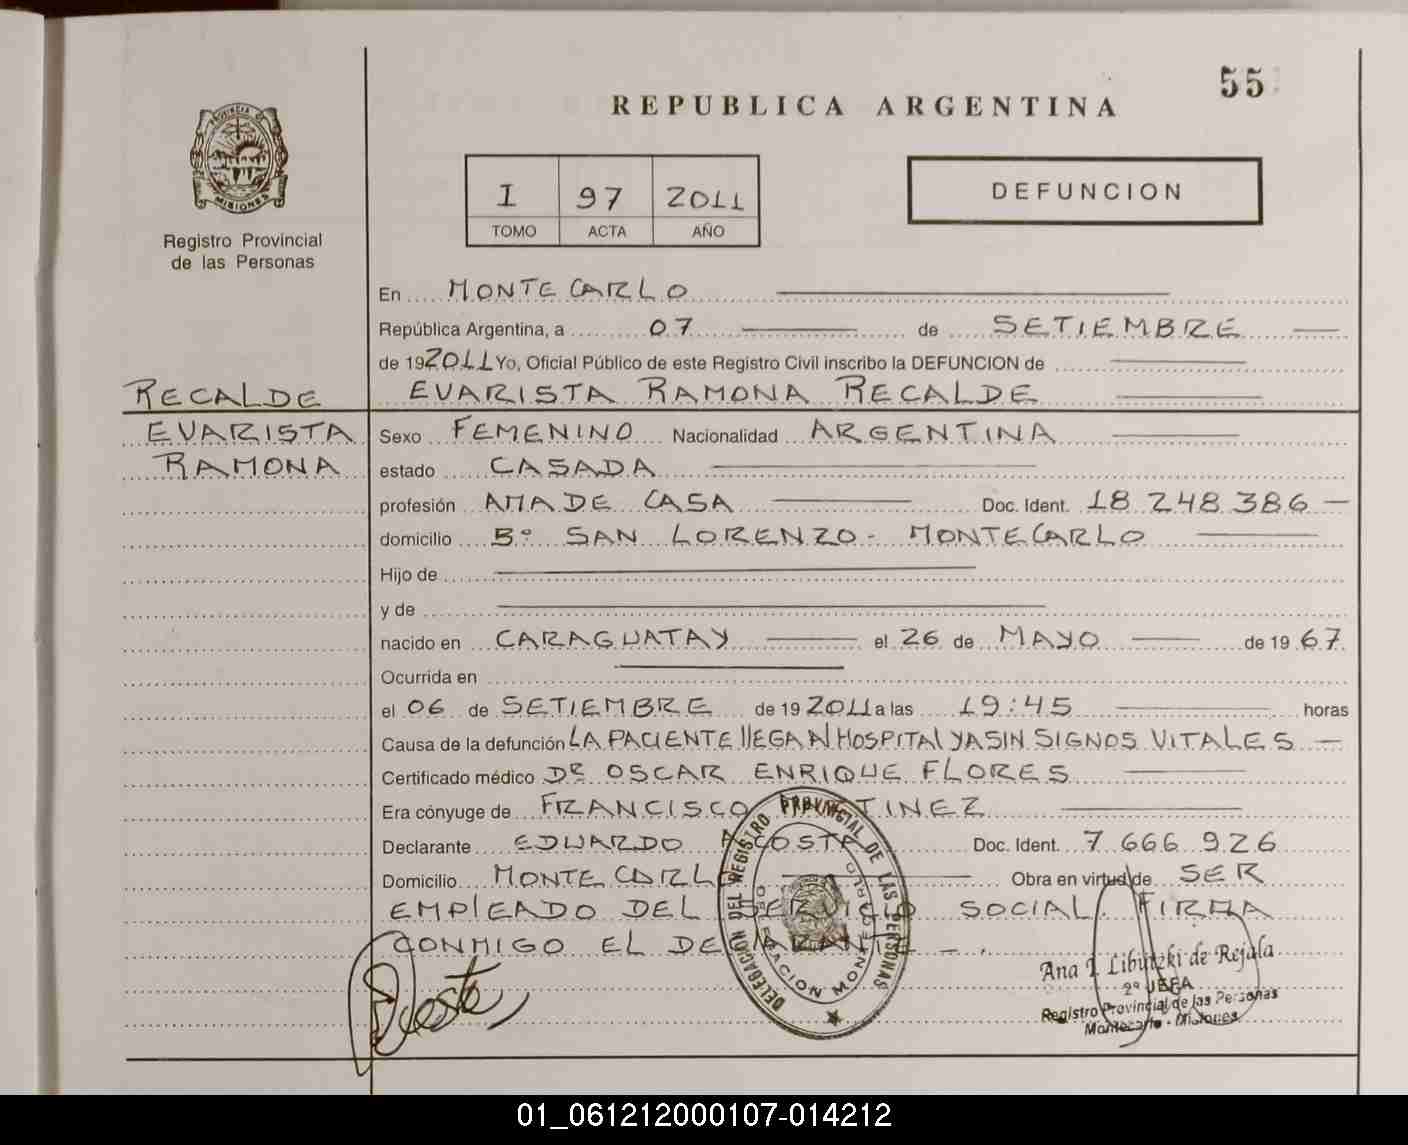 55
REPUBLICA ARGENTINA
PROVINCIA DE
MISIONES
Registro Provincial
de las Personas
I 97 2011
TOMO ACTA AÑO
DEFUNCION
En MONTECARLO
República Argentina, a 07 de SETIEMBRE
de 192011 Yo, Oficial Público de este Registro Civil inscribo la DEFUNCION de
RECALDE EVARISTA RAMONA RECALDE
EVARISTA Sexo FEMENINO Nacionalidad ARGENTINA
RAMONA estado CASADA
profesión AMA DE CASA Doc. Ident. 18 248 386
domicilio Bº SAN LORENZO - MONTECARLO
Hijo de
y de
nacido en CARAGUATAY el 26 de MAYO de 1967
Ocurrida en
el 06 de SETIEMBRE de 192011 a las 19:45 horas
Causa de la defunción LA PACIENTE llEGA Al HOSPITAl YA SIN SIGNOS VITALES
Certificado médico Dr OSCAR ENRIQUE FLORES
Era cónyuge de FRANCISCO MARTINEZ
Declarante EDUARDO ACOSTA Doc. Ident. 7 666 926
Domicilio MONTECARLO Obra en virtud de SER
EMPlEADO DEL SERVICIO SOCIAL. FIRMA
CONMIGO EL DECLARANTE - .
DELEGACION DEL REGISTRO PROVINCIAL DE LAS PERSONAS
MONTECARLO
Ana I. Libutzki de Rejala
2º JEFA
Registro Provincial de las Personas
Montecarlo - Misiones
01_061212000107-014212